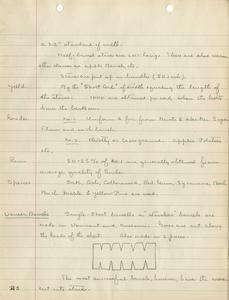 a 22" standard of width.
Half-barrel staves are 20" long. There are also some
other staves as apple barrels etc.
Staves are put up in bundles (50 each).
Yield. By the "Short Cord" of width equaling the length of
the staves. 1000 are obtained per cord when the bolts
from the bottom.
Grades No. 1. Uniform & free from
Flour and such barrels.
No. 2. Apples Potatoes
etc.
50-55% of No. 1 are generally obtained from
average quality of timber.
Species Oak, Ash, Cottonwood, Red Gum, Sycamore, Beech
Birch Maple & Yellow Pine are used.
Veneer Barrels. Single-sheet barrels or "stoveless" barrels are
made in Vermont and Missouri. are cut along
the heads of the sheet. Also made in 2 pieces.
The most successful barrels, however, have the veneer
cut into staves.